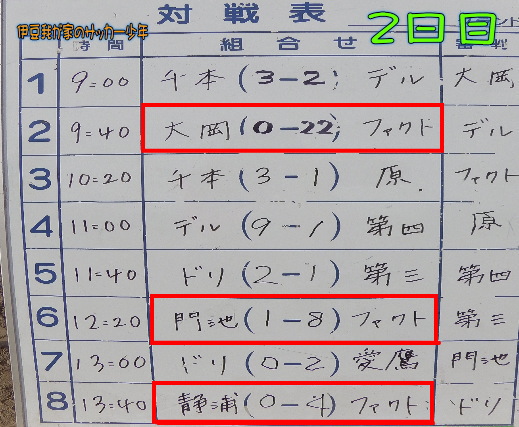 対戦表
2日目
伊豆我が家のサッカー少年
時間 組合せ 審戦
1 9=00 千本(3-2) デル 大岡
2 9=40 大岡(0-22) ファクト デル
3 10=20 千本(3-1) 原 ファクト
4 11=00 デル(9-1) 第四 原
5 11=40 ドリ(2-1) 第三 第四
6 12=20 門池(1-8) ファクト 第三
7 13=00 ドリ(0-2) 愛鷹 門池
8 13=40 静浦(0-4) ファクト ドリ